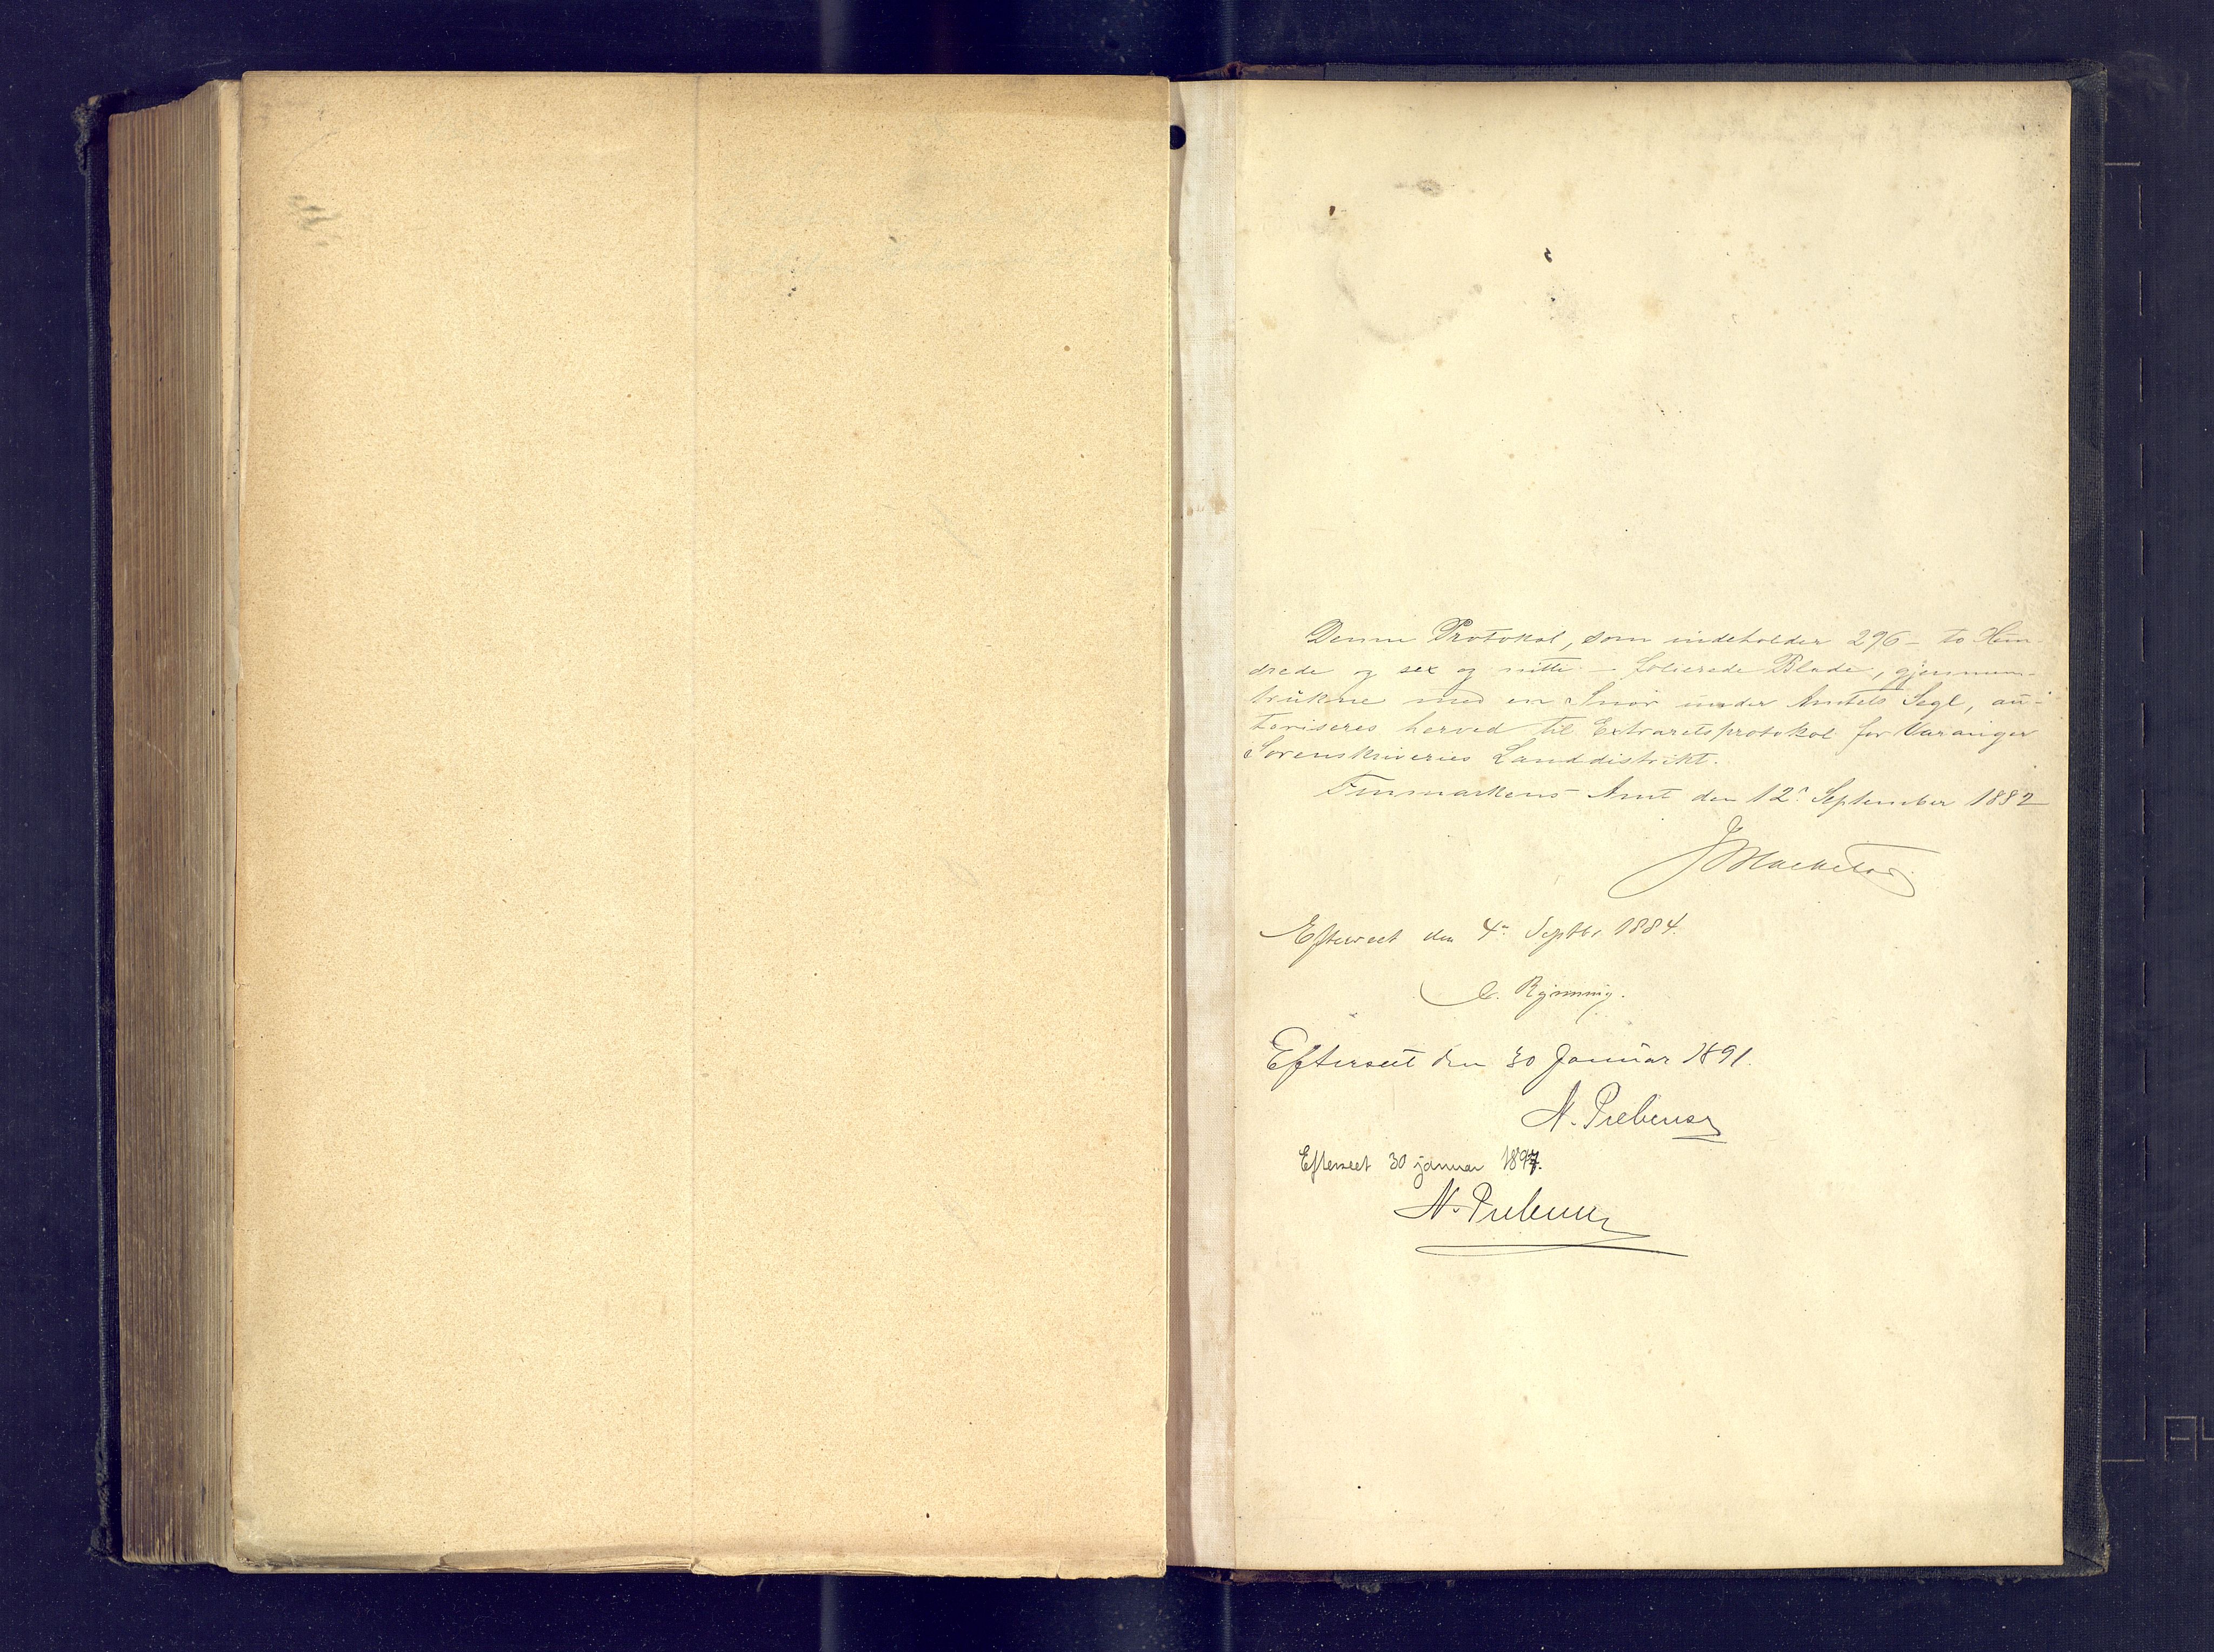 Denne Protokol, som indeholder 296 - to Hun-
drede og sex og nitti - folierede Blade, gjennem-
trukne med en Snor under Amtets Segl, au-
toriseres herved til Extraretsprotokol for Varanger
Sorenskriveries Landdistrikt.
Finmarkens Amt den 12te September 1882
Efterseet den 4de Septbr 1884.
Efterseet den 30 Januar 1891.
N. Prebensen
Efterseet 30 januar 1897.
N. Prebensen